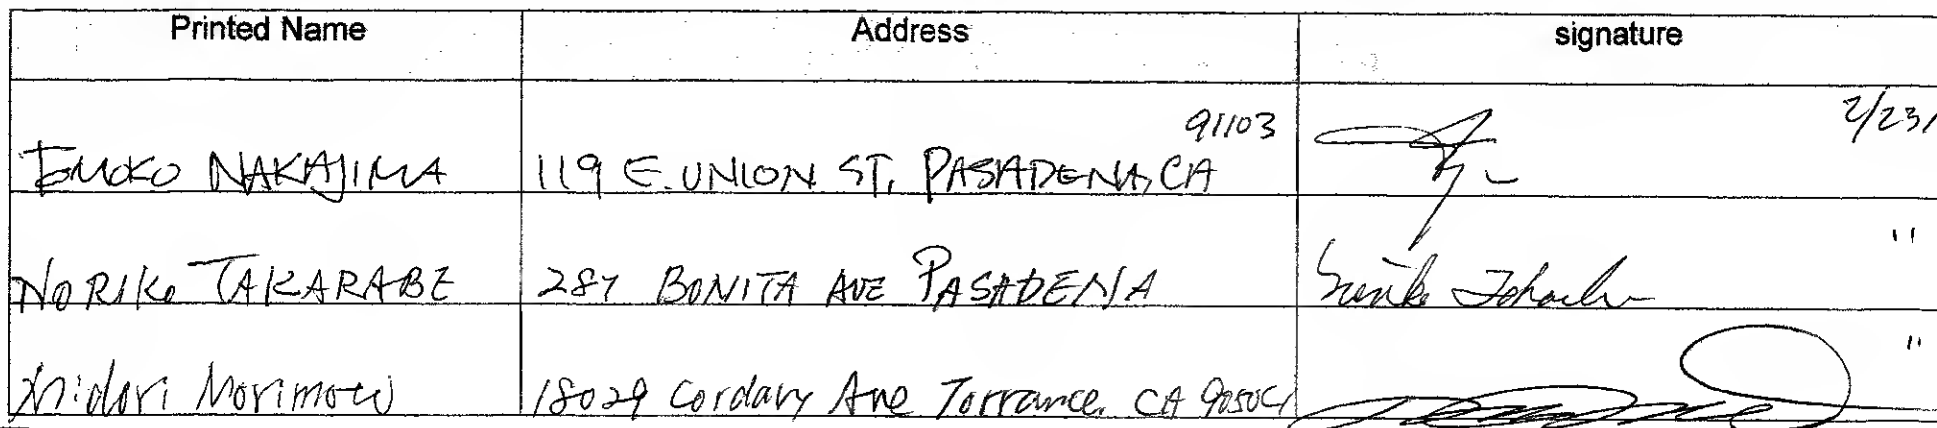 Printed Name Address signature
91103 2/23/
TOMOKO NAKAJIMA 119 E. UNION ST, PASADENA, CA
"
NORIKO TAKARABE 287 BONITA AVE PASADENA
"
Midori Morimoto 18029 Cordary Ave Torrance, CA